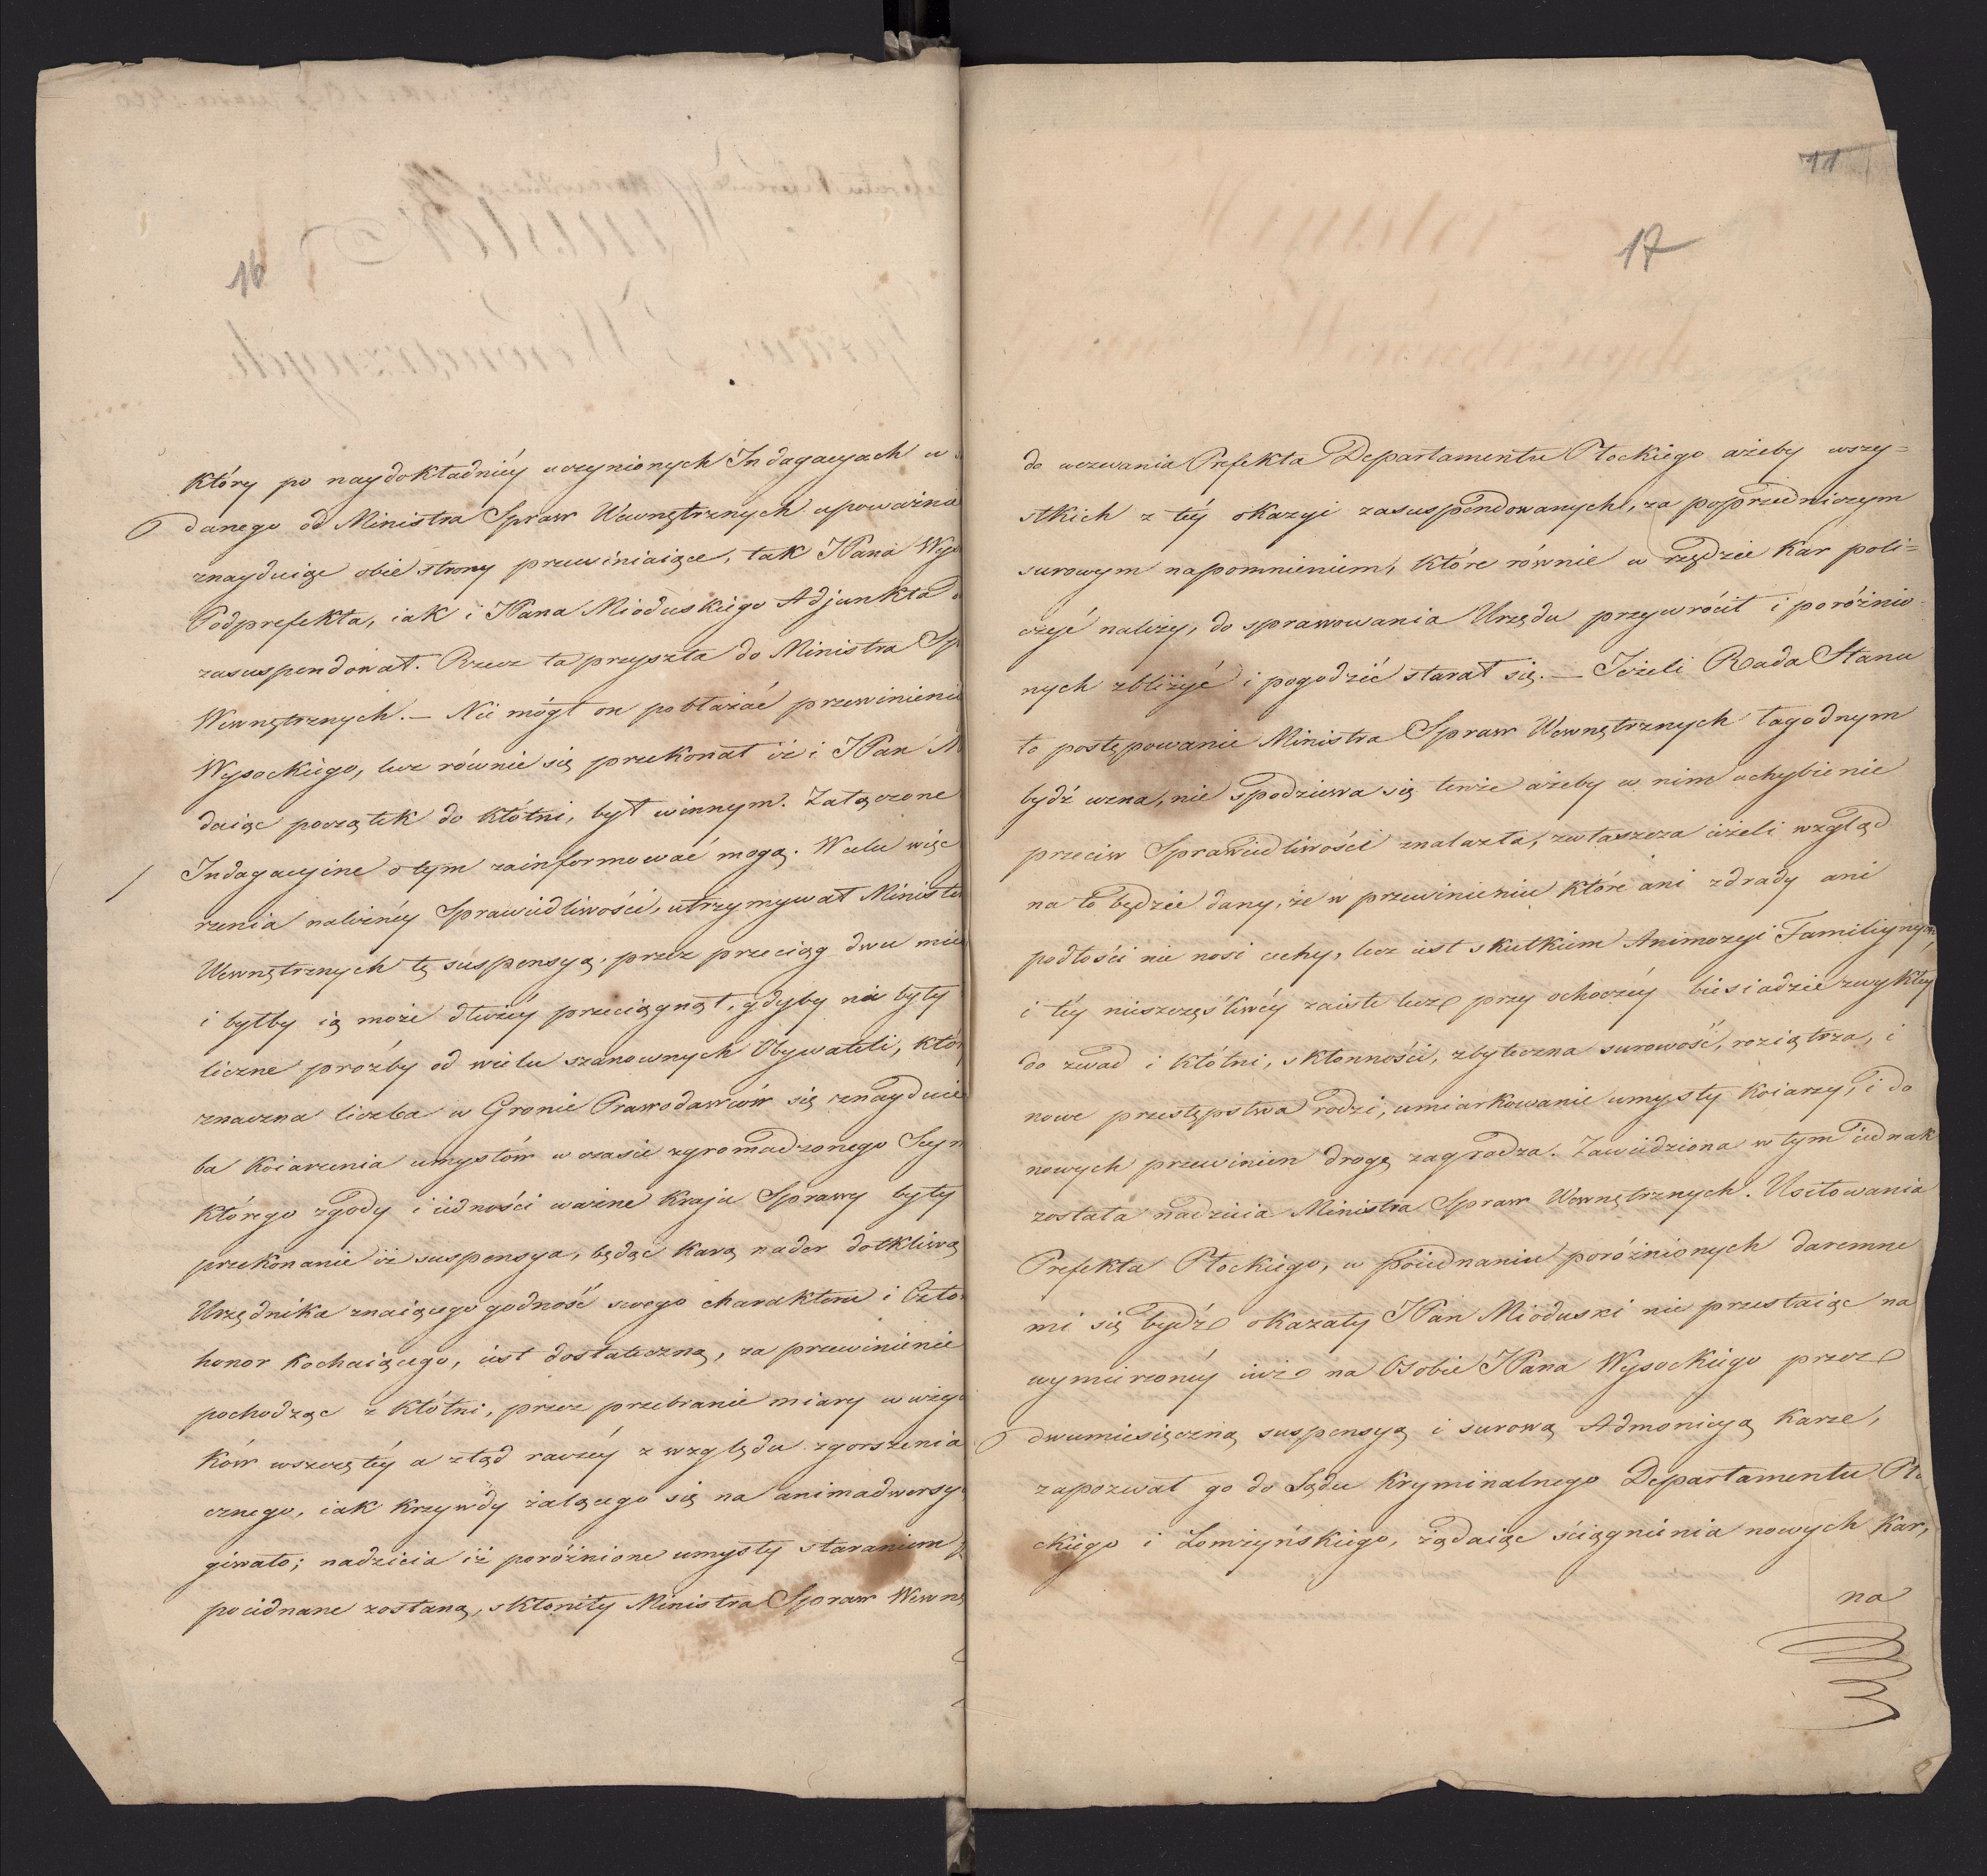 16
który po naydokładniéy uczynionych Indagacyach w
danego od Ministra Spraw Wewnętrznych upoważnia
znayduiąc obie strony przewiniaiące, tak JPana Wys
Podprefekta, iak i JPana Mioduskiego Adjunkta
zasuspendował. Rzecz ta przyszła do Ministra Sp
Wewnętrznych. – Nie mógł on pobłażać przewinieniu
Wysockiego, lecz równie się przekonał iż i JPan M
daiąc początek do kłótni, był winnym. Załączone
Indagacyine o tym zainformować mogą. W celu więc
rzenia należnéy Sprawiedliwości, utrzymywał Ministe
Wewnętrznych tę suspensyą, przez przeciąg dwu mie
i byłby ią może dłużéy przeciągnął, gdyby nie były
liczne proźby od wielu szanownych Obywateli, któr
znaczna liczba w Gronie Prawodawców się znayduie
ba koiarzenia umysłów w czasie zgromadzonego Seym
którego zgody i iedności ważne Kraju Sprawy były
przekonanie iż suspensya, będąc karą nader dotkliwą
Urzędnika znaiącego godność swego charakteru i Czło
honor kochaiącego, iest dostateczną, za przewinienie
pochodząc z kłótni, przez przebranie miary w użyc
ków wszczętéy a ztąd raczéy z względu zgorszenia
cznego, iak krzywdy żalącego się na animadwersy
giwało; nadzieia iż poróżnione umysły staraniem
poiednane zostaną, skłoniły Ministra Spraw Wewnę
11
17
do wezwania Prefekta Departamentu Płockiego ażeby wszy=
stkich z téy okazyi zasuspendowanych, za poprzedniczym
surowym napomnieniem, które równie w rzędzie kar poli=
czyć należy, do sprawowania Urzędu przywrócił i poróżnio=
nych zbliżyć i pogodzić starał się. – Jeżeli Rada Stanu
to postępowanie Ministra Spraw Wewnętrznych łagodnym
bydź uzna, nie spodziewa się tenże ażeby w nim uchybienie
przeciw Sprawiedliwości znalazła, zwłaszcza ieżeli wzgląd
na to będzie dany, że w przewinieniu które ani zdrady ani
podłości nie nosi cechy, lecz iest skutkiem Animozyi Familiynym
i téy nieszczęśliwéy zaiste lecz przy ochoczéy biesiadzie zwykłéy
do zwad i kłótni, skłonności, zbyteczna surowość, roziątrza, i
nowe przestępstwa rodzi, umiarkowanie umysły koiarzy, i do
nowych przewinien drogę zagradza. Zawiedziona w tym iednak
została nadzieia Ministra Spraw Wewnętrznych. Usiłowania
Prefekta Płockiego, w poiednaniu poróżnionych daremne
mi się bydź okazały JPan Mioduski nie przestaiąc na
wymierzonéy iuż na Osobie JPana Wysockiego przez
dwumiesięczną suspensyą i surową Admonicyą karze,
zapozwał go do Sądu Kryminalnego Departamentu Pło
ckiego i Łomżyńskiego, żądaiąc ściągnienia nowych kar,
na